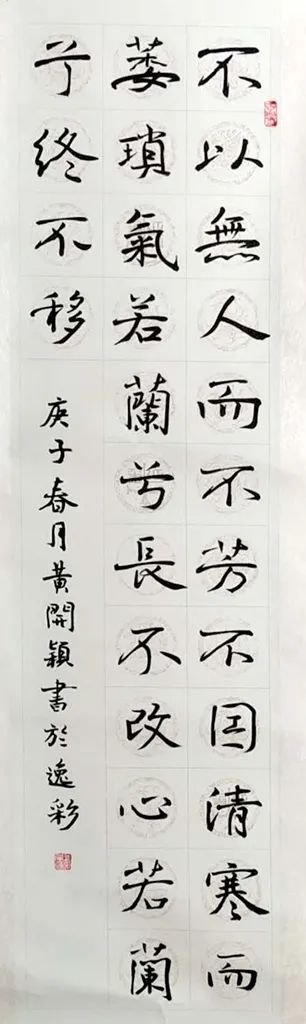 不以無人而不芳不因清寒而
萎瑣氣若蘭兮長不改心若蘭
兮終不移
庚子春月黃開穎書於逸彩